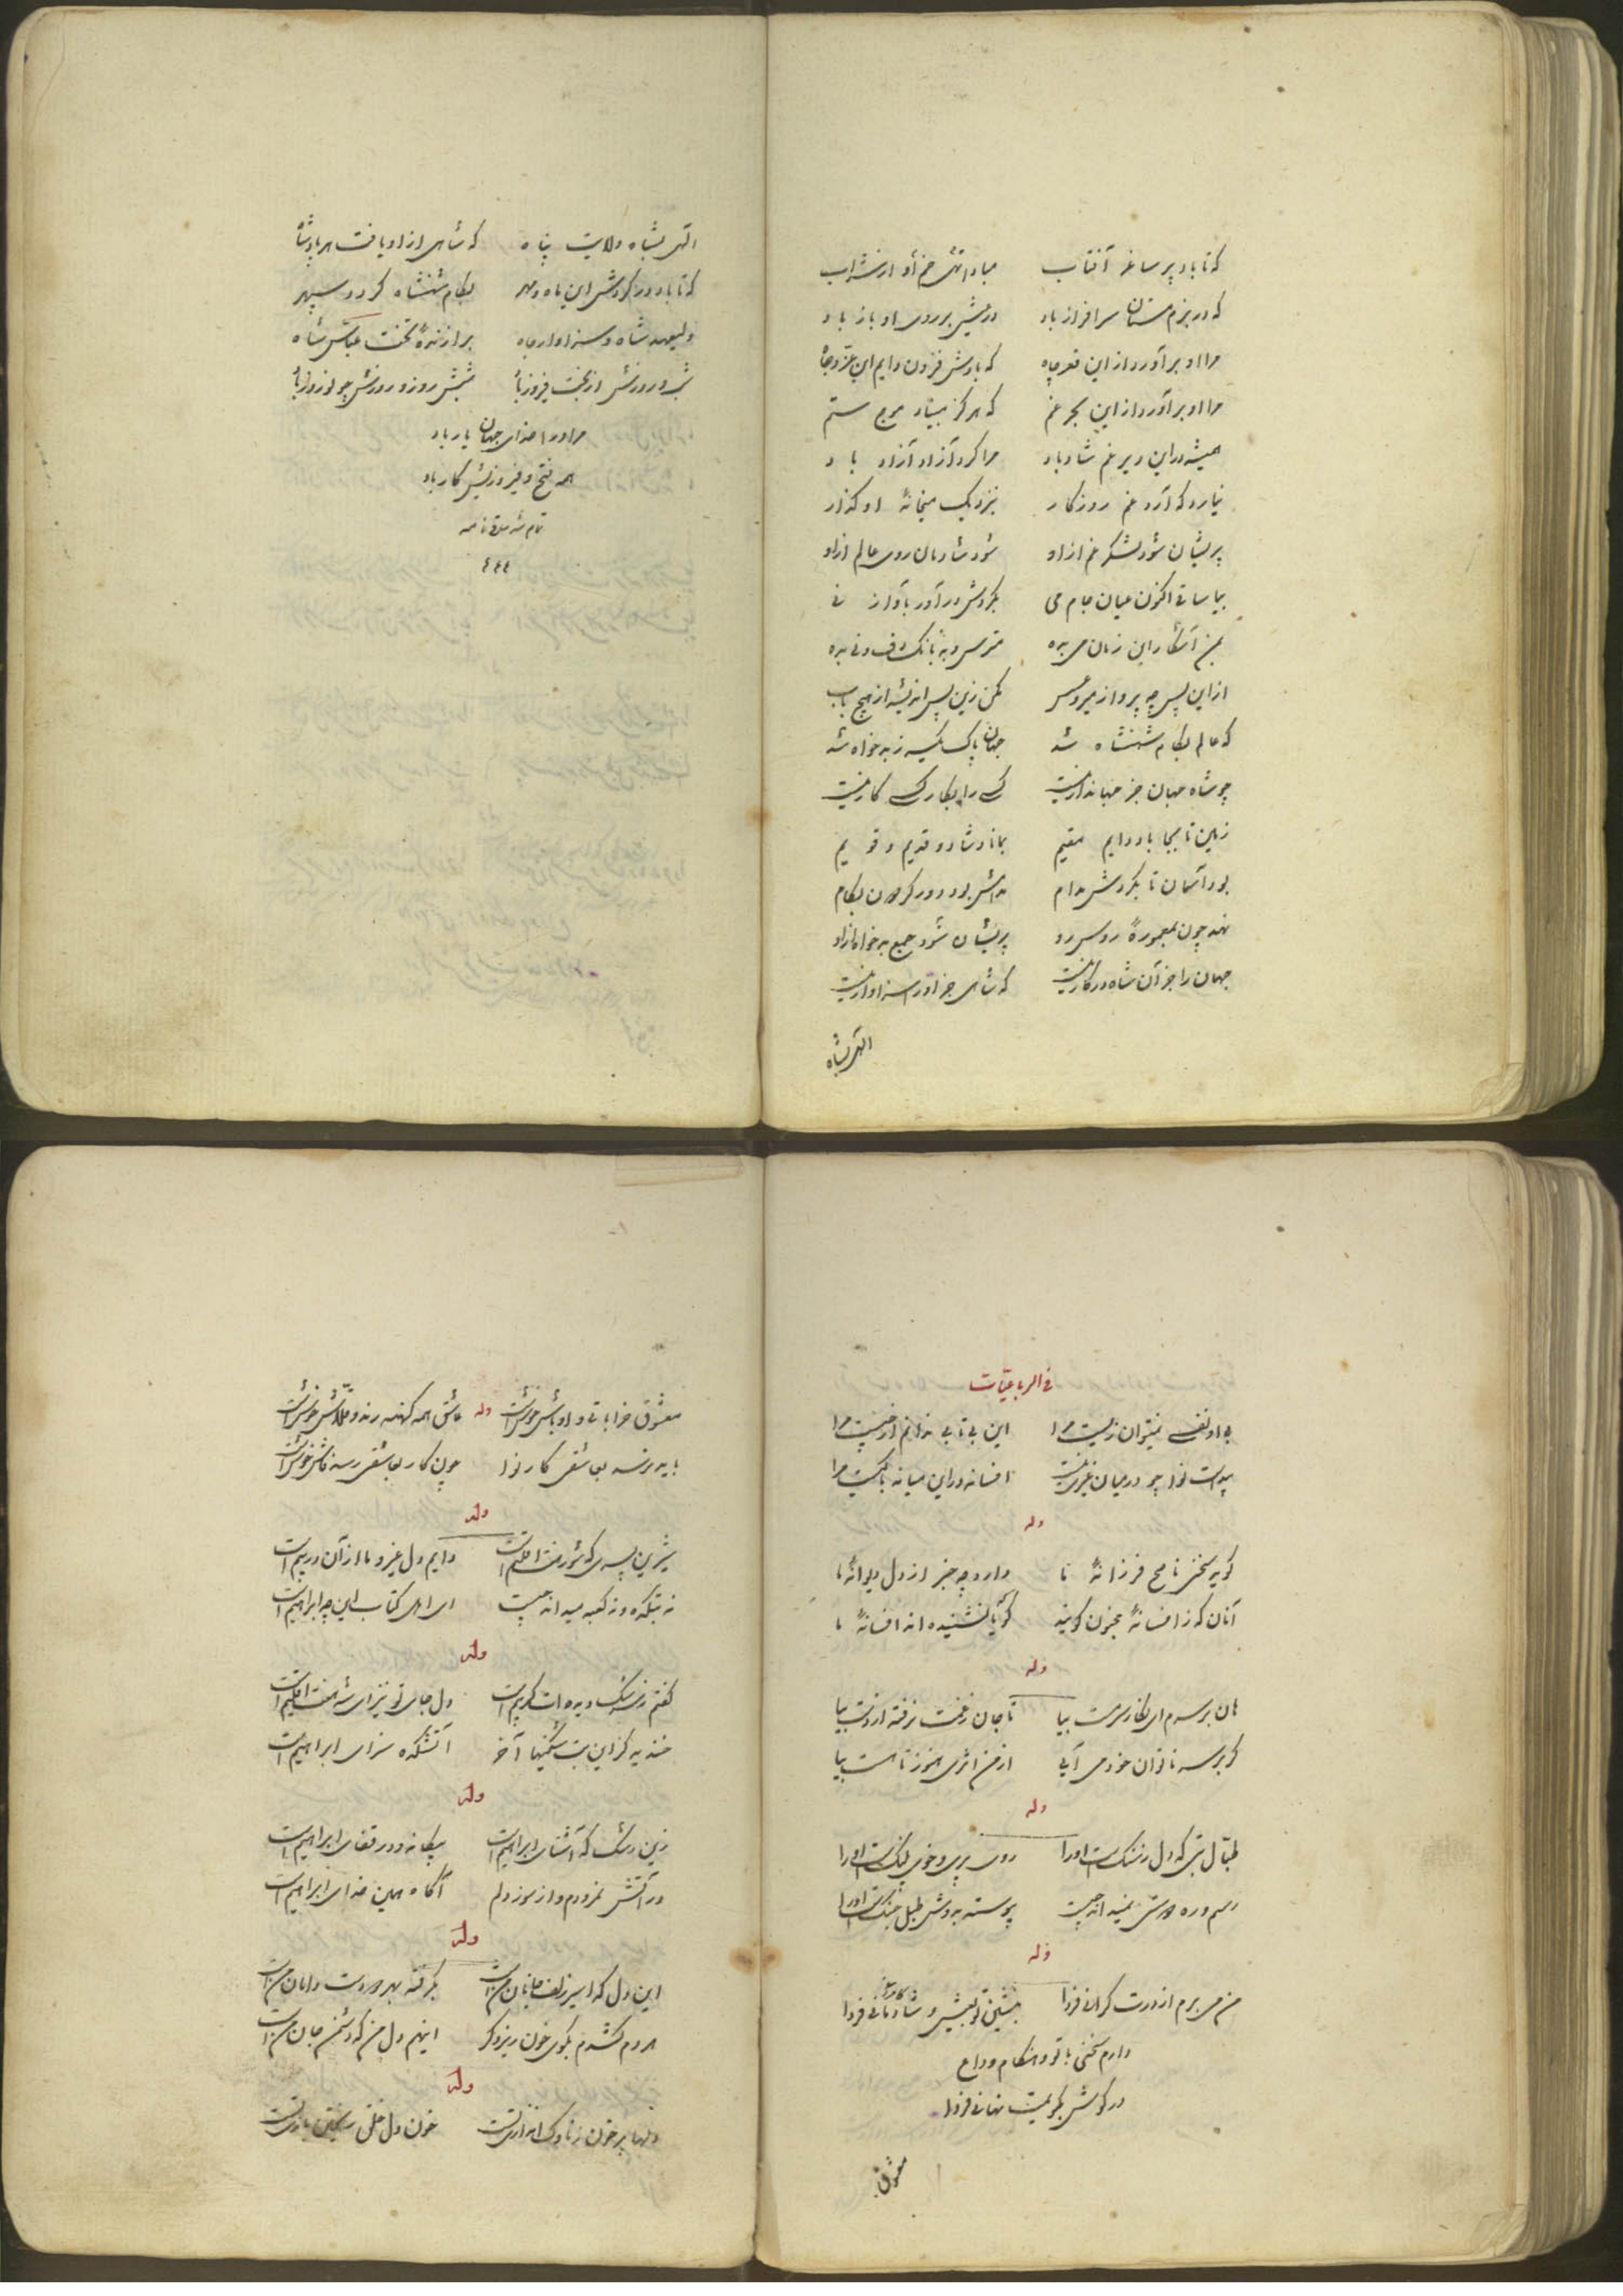 که تا باد پر ساغر آفتاب مبادا تهی خم او از شراب
که در بزم مستان سرافراز باد در عیش بر روی او باز باد
مرا او برآورد از این قعر چاه که بادش فزون دایم این عز و جاه
مرا او برآورد از این بحر غم که هرگز مبیناد موج ستم
همیشه در این دیر غم شاد باد مرا کرد آزاد آزاد باد
نیارد که آرد غم روزکار بنزدیک میخانهٔ او کذار
پریشان شود لشکر غم از او شود شادمان روی عالم از او
بیا ساقی اکنون عیان جام می بکردش درآور بآواز نی
بمن آشکار این زمان می بده مترس و به بانک دف و نی بده
از این پس چه پروا ز میر و عسس مکن زین پس اندیشه از هیچ
که عالم بکام شهنشاه شد جهان پاک یکسر ز بدخواه شد
چو شاه جهان جز جهاندار نیست کسی را بکار کسی کار نیست
زمین تا بجا باد دایم مقیم بماناد شاد و قدیم و قویم
بود آسمان تا بکردش مدام مدامش بود دور کردون بکام
نهد چون بمعمورهٔ روس رو پریشان شود جمع بدخواه از او
جهان را جز آن شاه در کار نیست که شاهی جز او را سزاوار نیست
الهی بشاه
الهی بشاه ولایت پناه که شاهی از او یافت هر پادشاه
که تا باد در کردش این ماه و مهر بکام شهنشاه کردد سپهر
ولیعهد شاه و سزاوار جاه برازندهٔ تخت عباس شاه
شب و روزش از بخت فیروز باد شبش روز و روزش چو نوروز باد
مر او را خدای جهان یار باد
همه فتح و فیروزیش کار باد
تام شد ساقی نامه
فی الرباعیات
بی او نفسی نمیتوان زیست مرا این بی تابی ندانم از چیست مرا
پیداست نوا چو در میان غیری نیست افسانه در این میانه با کیست مرا
وله
کوید سخن ناصح فرزانهٔ ما دارد چه خبر از دل دیوانهٔ ما
آنان که ز افسانهٔ مجنون کویند کویا نشنیده اند افسانهٔ ما
وله
هان بر سرم ای نکار سرمست بیا تا جان ز تنت نرفته از دست بیا
کر بر سر ناتوان خود می آیی از من اثری هنوز تا هست بیا
وله
طبال بتی که دل ز سنک است او را روی پری و خوی پلنک است او را
رسم و ره آشتی نمیداند چیست پیوسته بدوش طبل جنک است او را
وله
من می برم از درت کرانی فردا بنشین تو بعیش و شادمانی فردا
کامرانی
دارم سخنی با تو و هنکام وداع
در کوش بکویمت نهانی فردا
معشوق
معشوق خراباتی و اوباش خوش است وله عاشق همه کهنه رند و قلاش خوش است
باید نرسد بعاشقی کار نوا چون کار بعاشقی رسد فاش خوش است
وله
شیرین پسری که شور هفت اقلیم است دایم دل غیر و ما از آن در بیم است
نه بتکده و نه کعبه میداند چیست ای اهل کتاب این چه ابراهیم است
وله
کفتم ز سرشک دیده ات کر بیم است دل جای تو نیز ای شه هفت اقلیم است
خندید کز این بت شکنیها آخر آتشکده سزای ابراهیم است
وله
زین رشک که آشنای ابراهیم است بیکانه و در قفای ابراهیم است
در آتش نمرودم و از سوز دلم آکاه همین خدای ابراهیم است
وله
این دل که اسیر زلف جانان من است بکرفته بهر دو دست دامان من است
هر دم کشدم بکوی خون ریز دکر اینهم دل من که دشمن جان من است
وله
دلها پر خون ز ناوک اندازی تست خون دل خلق ریختن بازی تست